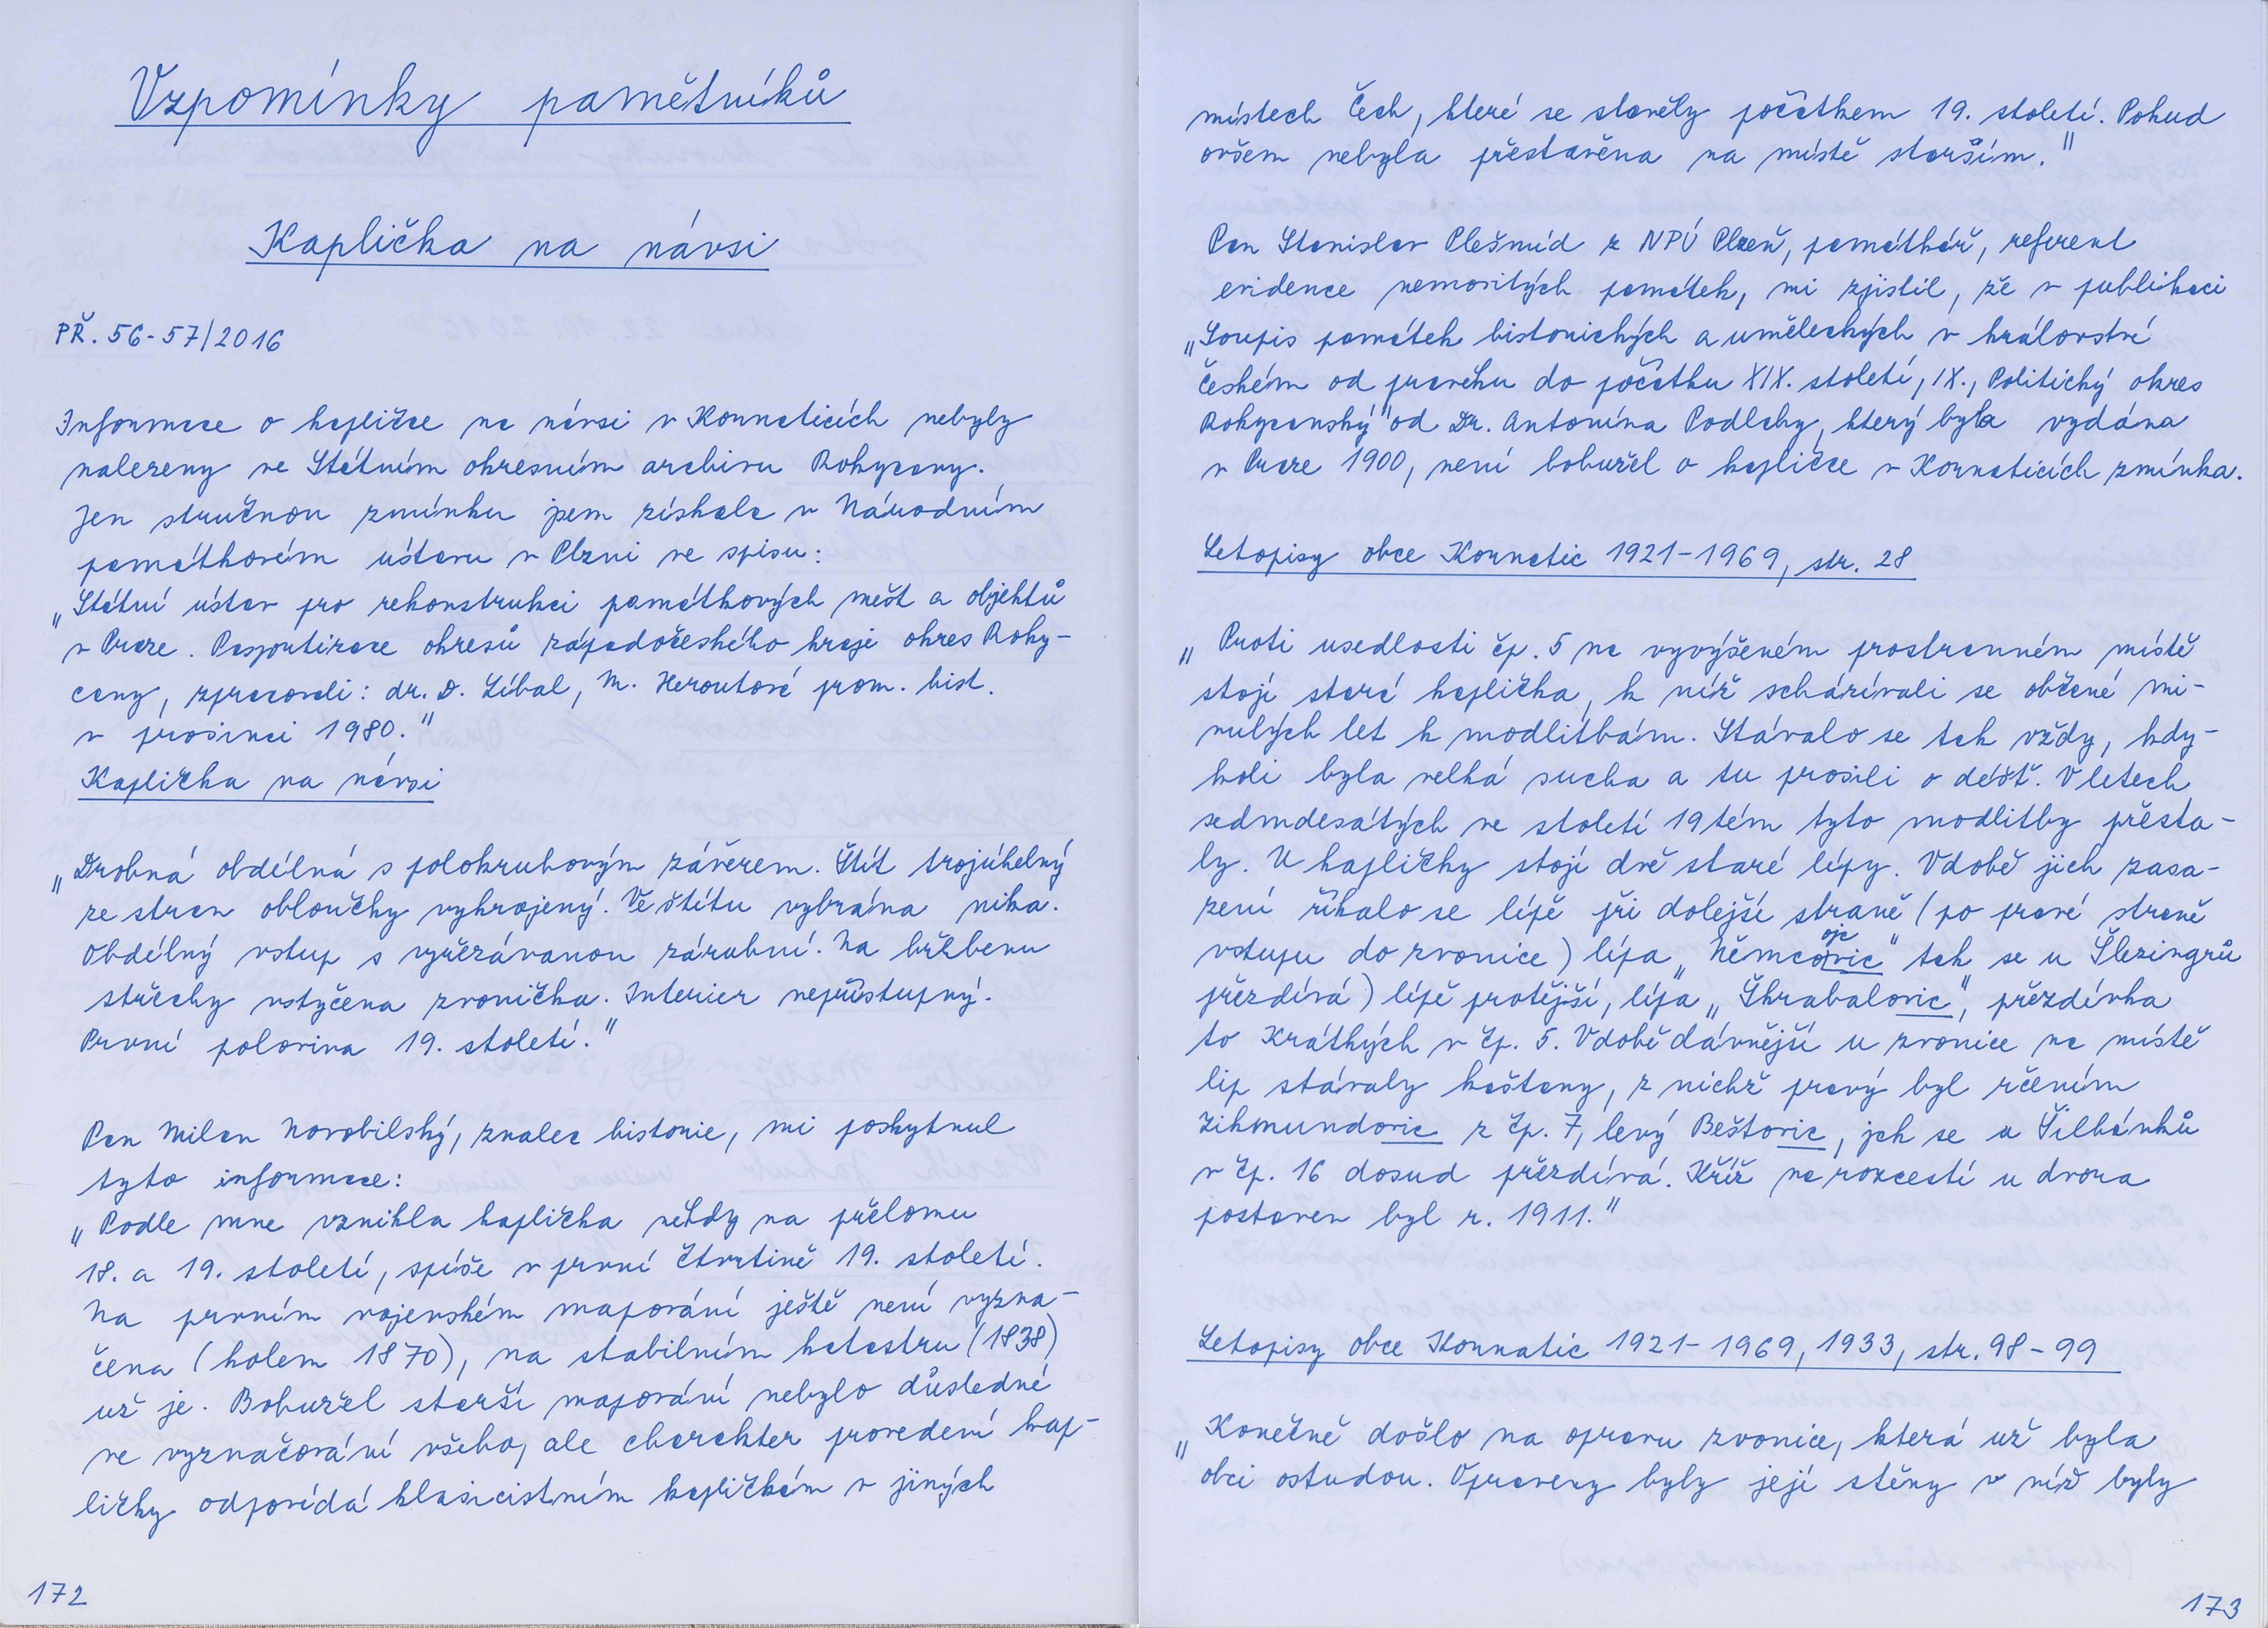 Vzpomínky pamětníků
Kaplička na návsi
PŘ. 56-57/2016
Informace o kapličce na návsi v Kornaticích nebyly
nalezeny ve Státním okresním archivu Rokycany.
Jen stručnou zmínku jsem získala v Národním
památkovém ústavu v Plzni ve spisu:
„Státní ústav pro rekonstrukci památkových měst a objektů
v Praze. Pasportizace okresů západočeského kraje okres Roky-
cany, zpracovali: dr. D. Líbal, M. Heroutová prom. hist.
v prosinci 1980."
Kaplička na návsi
„Drobná obdélná s polokruhovým závěrem. Štít trojúhelný
ze stran obloučky vykrojený. Ve štítu vybrána nika.
Obdélný vstup s vyřezávanou zárubní. Na hřebenu
střechy vstyčena zvonička. Interier nepřístupný.
První polovina 19. století."
Pan Milan Novobilský, znalec historie, mi poskytnul
tyto informace:
„Podle mne vznikla kaplička někdy na přelomu
18. a 19. století, spíše v první čtvrtině 19. století.
Na prvním vojenském mapování ještě není vyzna-
čena (kolem 1870), na stabilním katastru (1838)
už je. Bohužel starší mapování nebylo důsledné
ve vyznačování všeho, ale charakter provedení kap-
ličky odpovídá klasicistním kapličkám v jiných
172
místech Čech, které se stavěly počátkem 19. století. Pokud
ovšem nebyla přestavěna na místě starším."
Pan Stanislav Plešmíd z NPÚ Plzeň, památkář, referent
evidence nemovitých památek, mi zjistil, že v publikaci
„Soupis památek historických a uměleckých v království
českém od pravěku do počátku XIX. století, IX., Politický okres
Rokycanský" od Dr. Antonína Podlahy, který byla vydána
v Praze 1900, není bohužel o kapličce v Kornaticích zmínka.
Letopisy obce Kornatic 1921-1969, str. 28
„Proti usedlosti čp. 5 na vyvýšeném prostranném místě
stojí stará kaplička, k níž scházívali se občané mi-
nulých let k modlitbám. Stávalo se tak vždy, kdy-
koli byla velká sucha a tu prosili o déšť. V letech
sedmdesátých ve století 19tém tyto modlitby přesta-
ly. U kapličky stojí dvě staré lípy. V době jich zasa-
zení říkalo se lípě při dolejší straně (po pravé straně
vstupu do zvonice) lípa „Němcovic" tak se u Šlezingrů
přezdívá) lípě protější, lípa „Škrabalovic", přezdívka
to Krátkých v čp. 5. V době dávnější u zvonice na místě
lip stávaly kaštany, z nichž pravý byl rčením
Zikmundovic z čp. 7, levý Beštovic, jak se u Šilhánků
v čp. 16 dosud přezdívá. Kříž na rozcestí u dvora
postaven byl r. 1911."
Letopisy obce Kornatic 1921-1969, 1933, str. 98-99
„Konečně došlo na opravu zvonice, která už byla
obci ostudou. Opraveny byly její stěny v níž byly
173